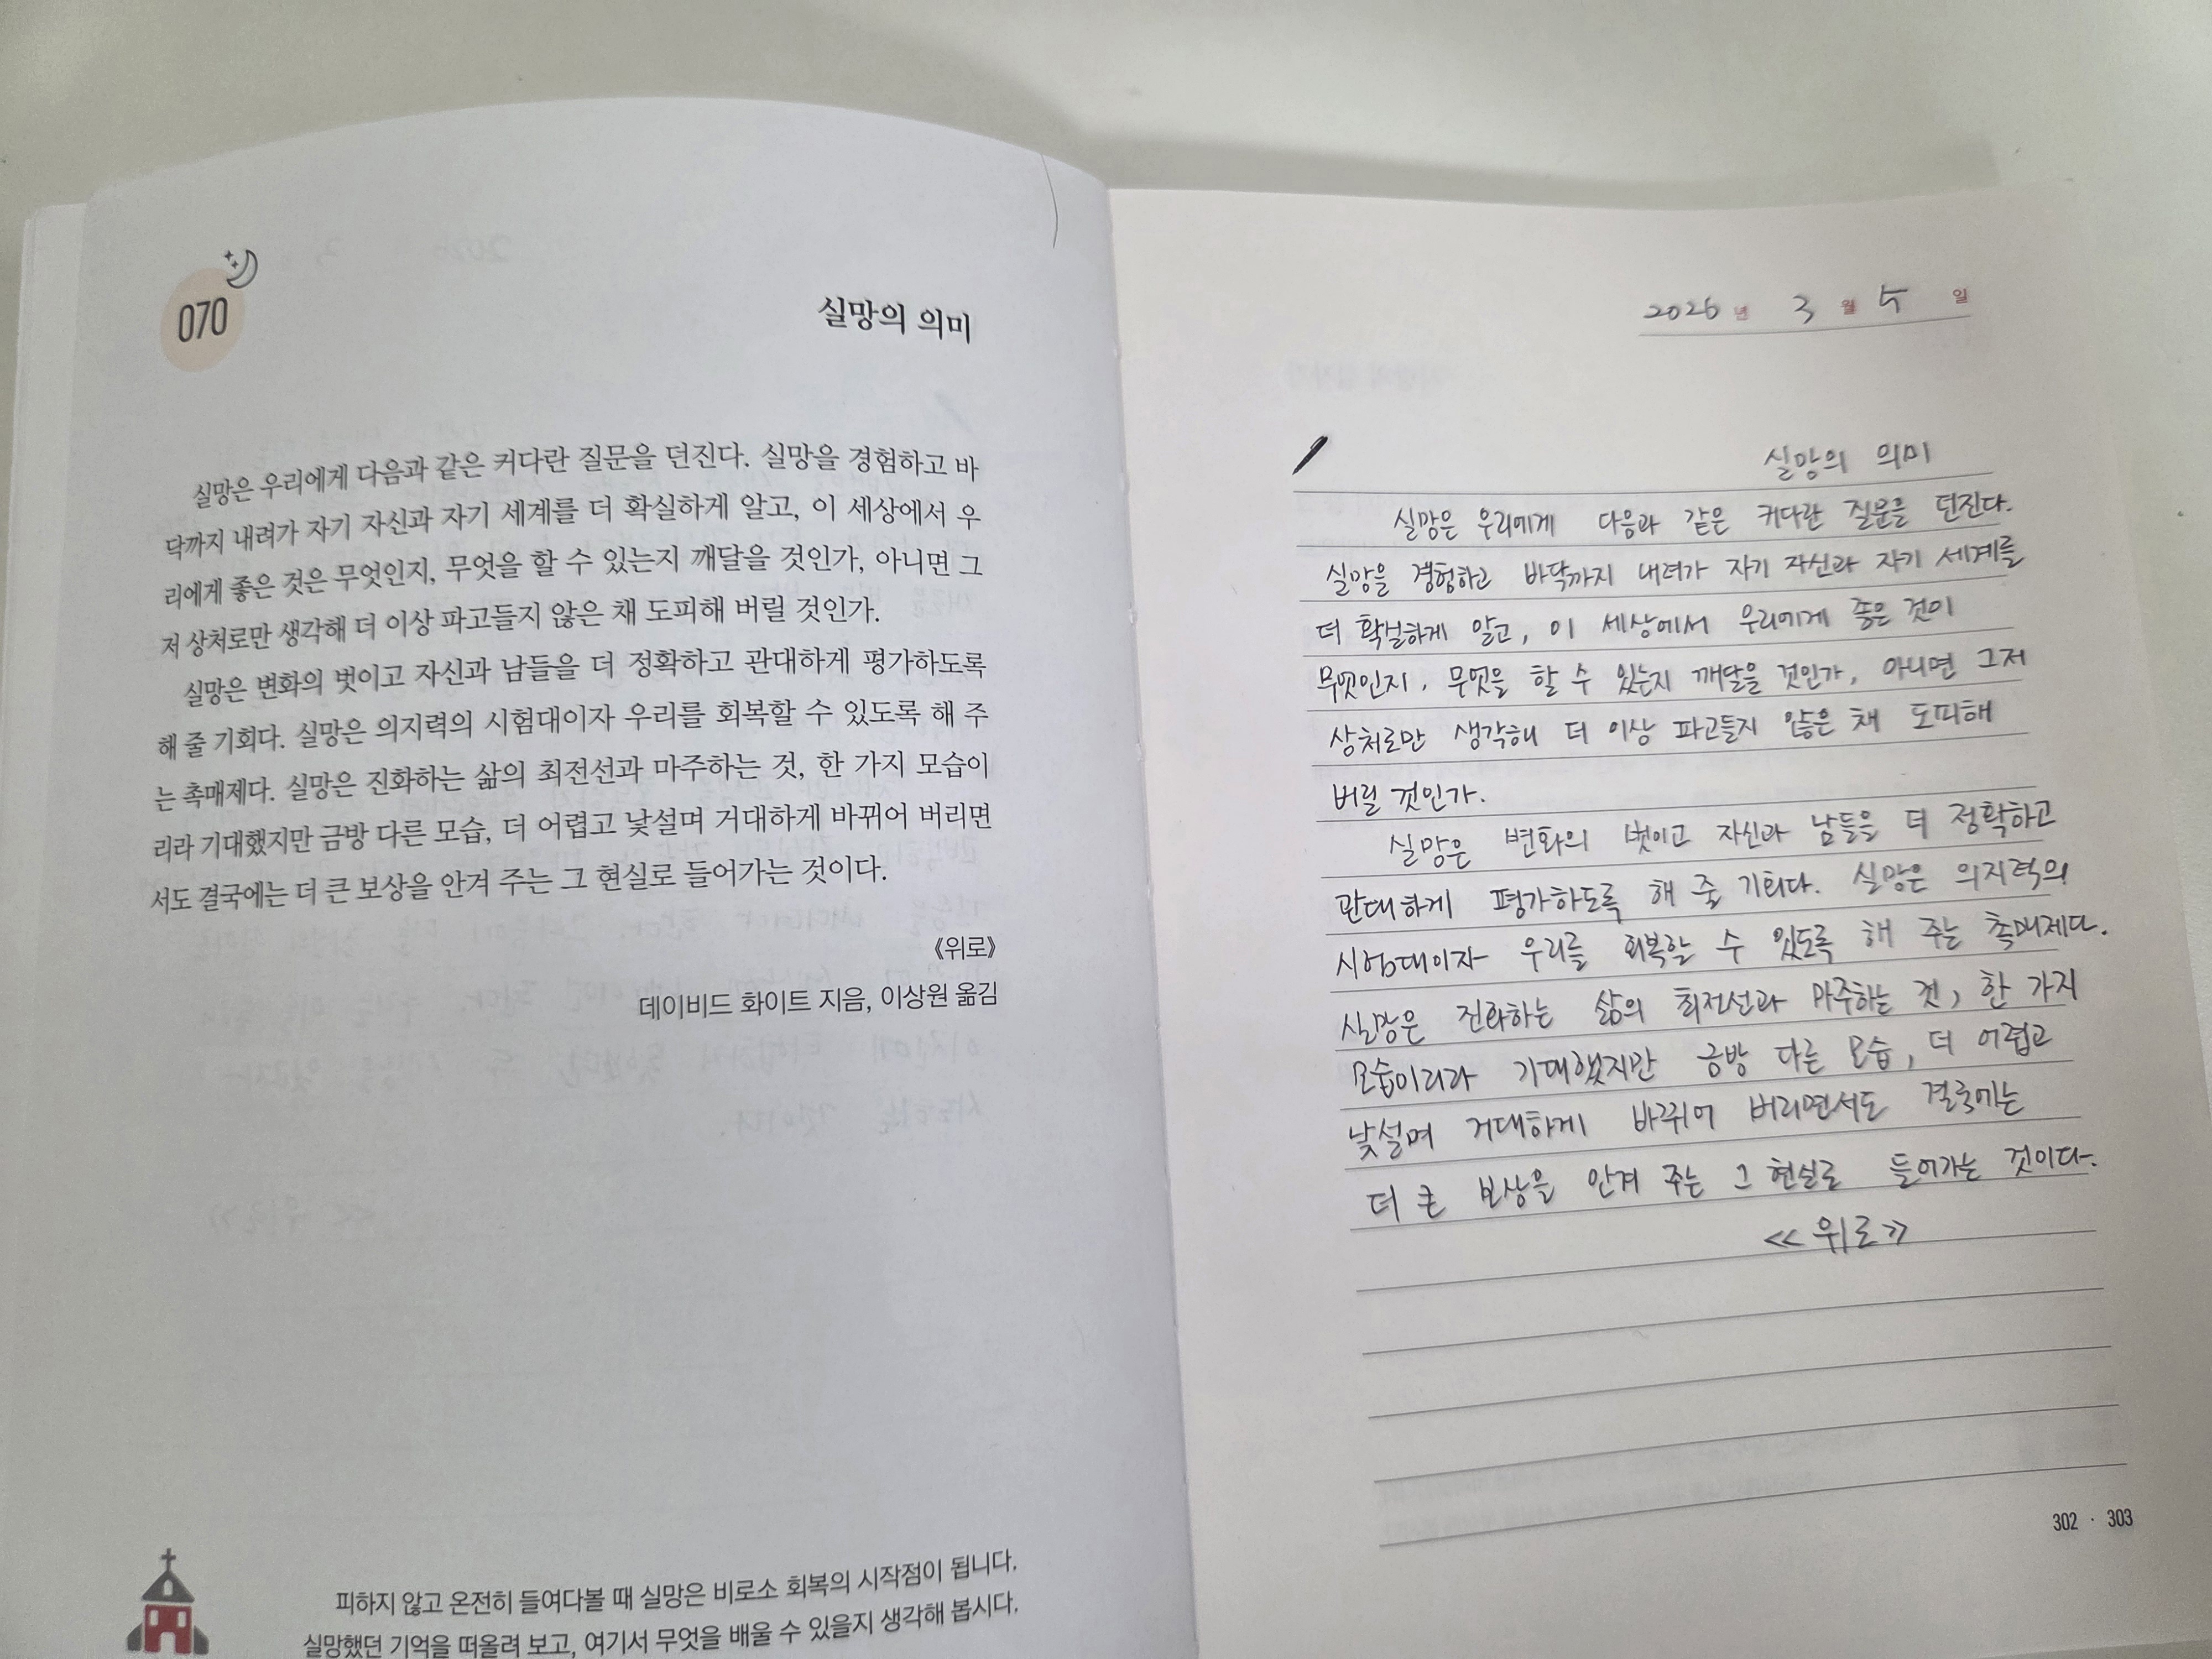 070
실망의 의미
실망은 우리에게 다음과 같은 커다란 질문을 던진다. 실망을 경험하고 바
닥까지 내려가 자기 자신과 자기 세계를 더 확실하게 알고, 이 세상에서 우
리에게 좋은 것은 무엇인지, 무엇을 할 수 있는지 깨달을 것인가, 아니면 그
저 상처로만 생각해 더 이상 파고들지 않은 채 도피해 버릴 것인가.
실망은 변화의 벗이고 자신과 남들을 더 정확하고 관대하게 평가하도록
해 줄 기회다. 실망은 의지력의 시험대이자 우리를 회복할 수 있도록 해 주
는 촉매제다. 실망은 진화하는 삶의 최전선과 마주하는 것, 한 가지 모습이
리라 기대했지만 금방 다른 모습, 더 어렵고 낯설며 거대하게 바뀌어 버리면
서도 결국에는 더 큰 보상을 안겨 주는 그 현실로 들어가는 것이다.
《위로》
데이비드 화이트 지음, 이상원 옮김
피하지 않고 온전히 들여다볼 때 실망은 비로소 회복의 시작점이 됩니다.
실망했던 기억을 떠올려 보고, 여기서 무엇을 배울 수 있을지 생각해 봅시다.
2026 년 3 월 5 일
실망의 의미
실망은 우리에게 다음과 같은 커다란 질문을 던진다.
실망을 경험하고 바닥까지 내려가 자기 자신과 자기 세계를
더 확실하게 알고, 이 세상에서 우리에게 좋은 것이
무엇인지, 무엇을 할 수 있는지 깨달을 것인가, 아니면 그저
상처로만 생각해 더 이상 파고들지 않은 채 도피해
버릴 것인가.
실망은 변화의 벗이고 자신과 남들을 더 정확하고
관대하게 평가하도록 해 줄 기회다. 실망은 의지력의
시험대이자 우리를 회복할 수 있도록 해 주는 촉매제다.
실망은 진화하는 삶의 최전선과 마주하는 것, 한 가지
모습이리라 기대했지만 금방 다른 모습, 더 어렵고
낯설며 거대하게 바뀌어 버리면서도 결국에는
더 큰 보상을 안겨 주는 그 현실로 들어가는 것이다.
<<위로>>
302 · 303